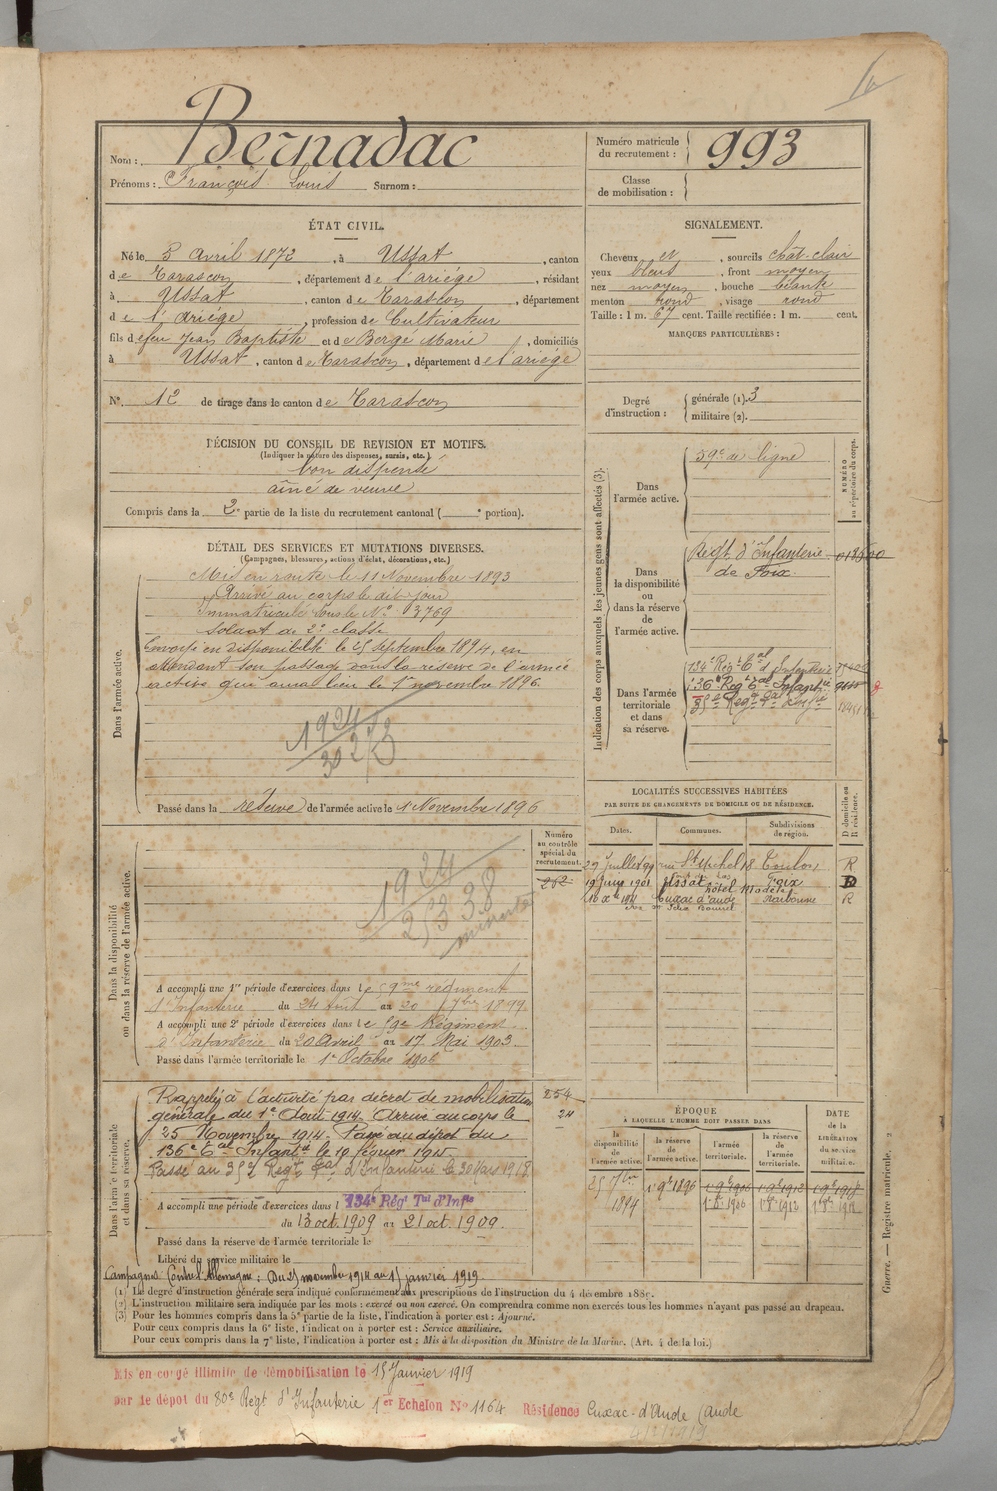 Nom : Bernadac
Prénoms : François Louis Surnom :
Numéro matricule du recrutement : 993
Classe de mobilisation :
ÉTAT CIVIL.
Né le 3 Avril 1872, à Ussat, canton
de Tarascon, département de l'ariége, résidant
à Ussat, canton de Tarascon, département
de l'Ariége, profession de Cultivateur
fils de feu Jean Baptiste et de Berge Marie, domiciliés
à Ussat, canton de Tarascon, département de l'ariége
N° 12 de tirage dans le canton de Tarascon
SIGNALEMENT.
Cheveux et, sourcils chât. clair
yeux bleus, front moyen
nez moyen, bouche béante
menton rond, visage rond
Taille : 1 m. 67 cent. Taille rectifiée : 1 m. cent.
MARQUES PARTICULIÈRES :
Degré d'instruction : générale (1). 3
militaire (2).
DÉCISION DU CONSEIL DE REVISION ET MOTIFS.
(Indiquer la nature des dispenses, sursis, etc.)
bon dispensé
aîné de veuve
Compris dans la 2e partie de la liste du recrutement cantonal ( e portion).
DÉTAIL DES SERVICES ET MUTATIONS DIVERSES.
(Campagnes, blessures, actions d'éclat, décorations, etc.)
Dans l'armée active.
Mis en route le 11 Novembre 1893
Arrivé au corps le dit jour
Immatriculé sous le N° 3769
Soldat de 2e classe
Envoyé en disponibilité le 25 septembre 1894, en
attendant son passage dans la réserve de l'armée
active qui aura lieu le 1er novembre 1896.
1924
Passé dans la réserve de l'armée active le 1 Novembre 1896
Indication des corps auxquels les jeunes gens sont affectés (3).
NUMÉRO au répertoire du corps.
Dans l'armée active.
59e de ligne
Dans la disponibilité ou dans la réserve de l'armée active.
Régt d'Infanterie
de Foix
Dans l'armée territoriale et dans sa réserve.
134e Régt Tal d'Infanterie
136e Régt Tal Infantie
LOCALITÉS SUCCESSIVES HABITÉES
PAR SUITE DE CHANGEMENTS DE DOMICILE OU DE RÉSIDENCE.
Dates. Communes. Subdivisions de région. D domicile ou R résidence.
29 Juillet 99 rue St Michel 18 Toulon R
19 Juin 1901 Ussat Foix D
hôtel
1911 Cuxac d'aude Narbonne R
Dans la disponibilité ou dans la réserve de l'armée active.
Numéro au contrôle spécial du recrutement.
262
1924
A accompli une 1re période d'exercices dans le 59me régiment
d'Infanterie du 24 Août au 20 7bre 1899
A accompli une 2e période d'exercices dans le 59e Régiment
d'Infanterie du 20 Avril au 17 Mai 1903
Passé dans l'armée territoriale le 1er Octobre 1906
Dans l'armée territoriale et dans sa réserve.
Rappelé à l'activité par décret de mobilisation
générale du 1er Août 1914. Arrivé au corps le
25 Novembre 1914. Passé au dépôt du
136e Tal Infantie le 19 février 1915.
854
24
A accompli une période d'exercices dans l 134e Régt Tal d'Infie
du 13 oct. 1909 au 21 oct. 1909.
Passé dans la réserve de l'armée territoriale le
Libéré du service militaire le
Campagnes Contre l'Allemagne : Du 25 novembre 1914 au 15 janvier 1919
ÉPOQUE
A LAQUELLE L'HOMME DOIT PASSER DANS
la disponibilité de l'armée active. la réserve de l'armée active. l'armée territoriale. la réserve de l'armée territoriale.
DATE DE LA LIBÉRATION du service militaire.
25 7bre 1894 1er 9bre 1896 1er 9bre 1906 1er 9bre 1912
Guerre. — Registre matricule. 2
(1) Le degré d'instruction générale sera indiqué conformément aux prescriptions de l'instruction du 4 décembre 1889.
(2) L'instruction militaire sera indiquée par les mots : exercé ou non exercé. On comprendra comme non exercés tous les hommes n'ayant pas passé au drapeau.
(3) Pour les hommes compris dans la 5e partie de la liste, l'indication à porter est : Ajourné.
Pour ceux compris dans la 6e liste, l'indication à porter est : Service auxiliaire.
Pour ceux compris dans la 7e liste, l'indication à porter est : Mis à la disposition du Ministre de la Marine. (Art. 4 de la loi.)
Mis en congé illimité de démobilisation le 15 Janvier 1919
par le dépôt du 80e Régt d'Infanterie 1er Echelon N° 1164 Résidence Cuxac-d'Aude (Aude